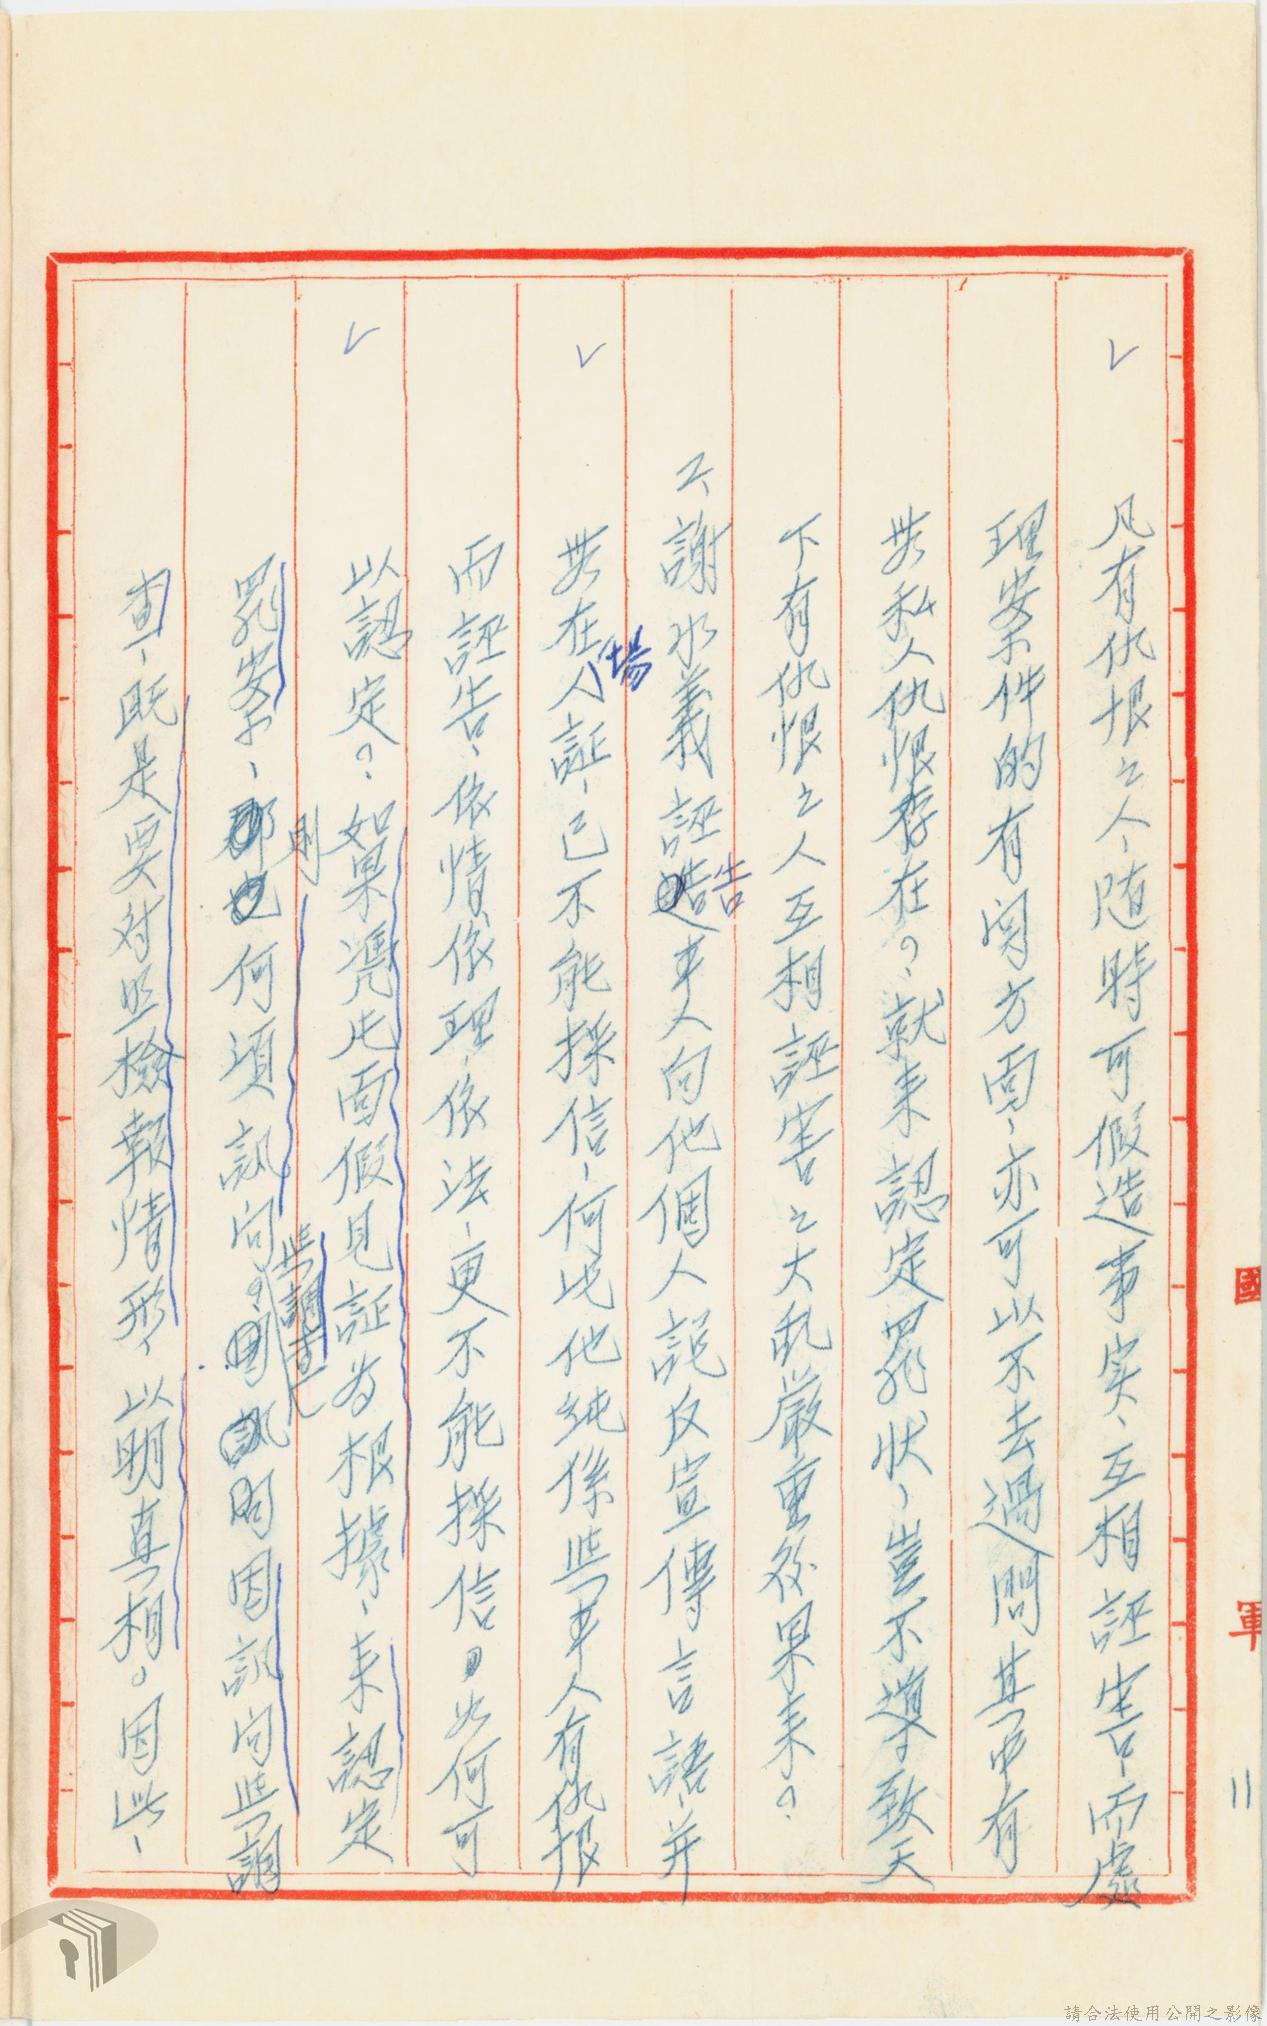 凡有仇恨之人、随時可假造事实、互相誣害、而處
理案件的有関方面、亦可以不去過問其中有
無私人仇恨存在？、就来認定罪狀、豈不導致天
下有仇恨之人互相誣害之大乱嚴重後果来？
2、謝水義誣告車人向他個人説反宣傳言語、并
無在場人証、已不能採信、何況他純係與車人有仇报
而誣告、依情、依理、依法、更不能採信。如何可
以認定？、如果凭片面假見証為根據、来認定
罪案、則何須訊问與調查。因訊问與調
查、既是要对照檢報情形、以明真相。因此、
國
軍
11
請合法使用公開之影像